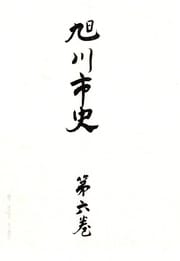 旭川市史
第六巻